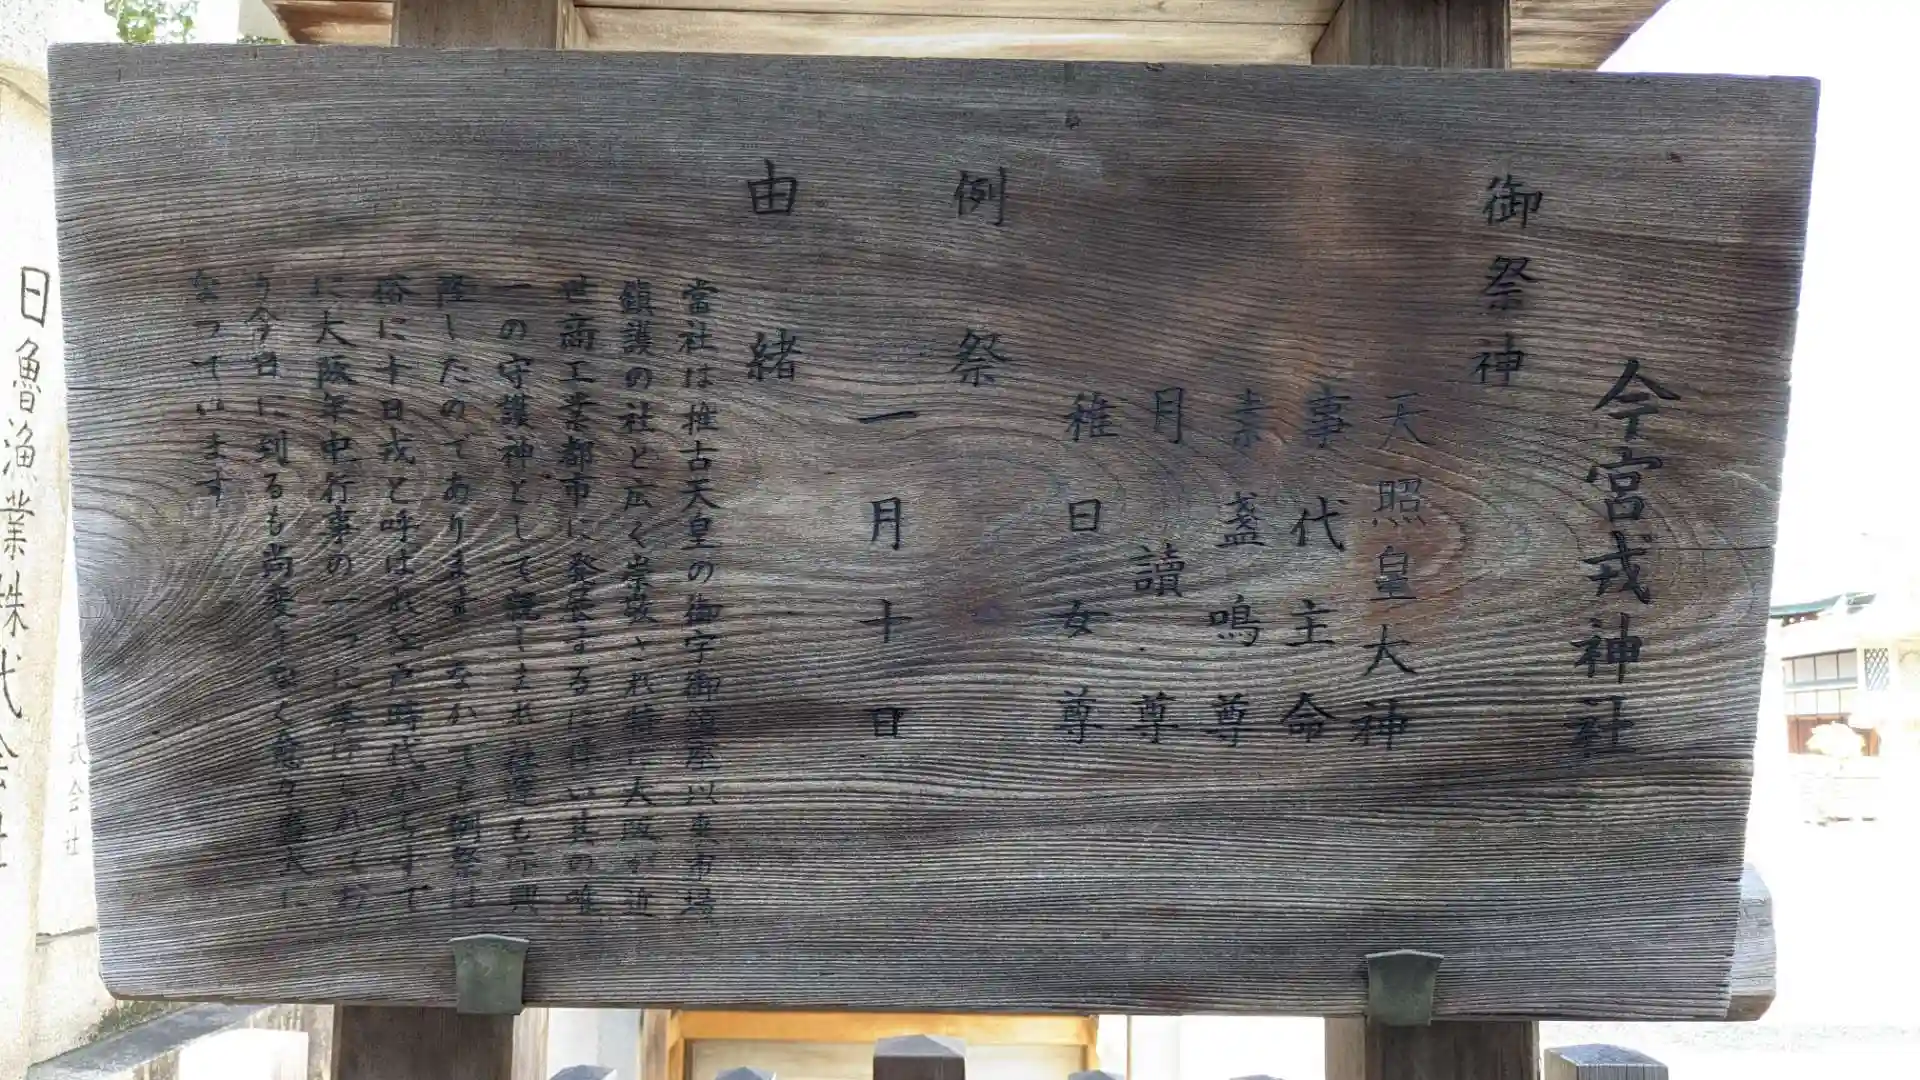 今宮戎神社
御祭神
天照皇大神
事代主命
素盞鳴尊
月讀尊
稚日女尊
例祭
一月十日
由緒
當社は推古天皇の御宇御鎮座以来市場
鎮護の社と広く崇敬され特に大阪が近
世商工業都市に発展するに伴い其の唯
一の守護神として 社運も亦興
隆したのであります なか でも例祭は
俗に十日戎と呼ばれ江戸時代からすで
に大阪年中行事の一つに挙げられてお
り今日に到るも尚変りなく 盛大に
なつています
日魯漁業株式会社
式会社